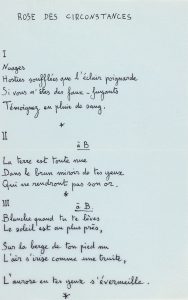 ROSE DES CIRCONSTANCES
I
Nuages
Hosties soufflées que l'éclair poignarde
Si vous n'êtes des faux-fuyants
Témoignez en pluie de sang.
*
II
à B.
La terre est toute nue
Dans le brun miroir de tes yeux
Qui ne rendront pas son or.
*
III
à B.
Blanche quand tu te lèves
Le soleil est au plus près,
Sur la berge de ton pied nu
L'air s'irise comme une truite,
L'aurore en tes yeux s'évermeille.
*